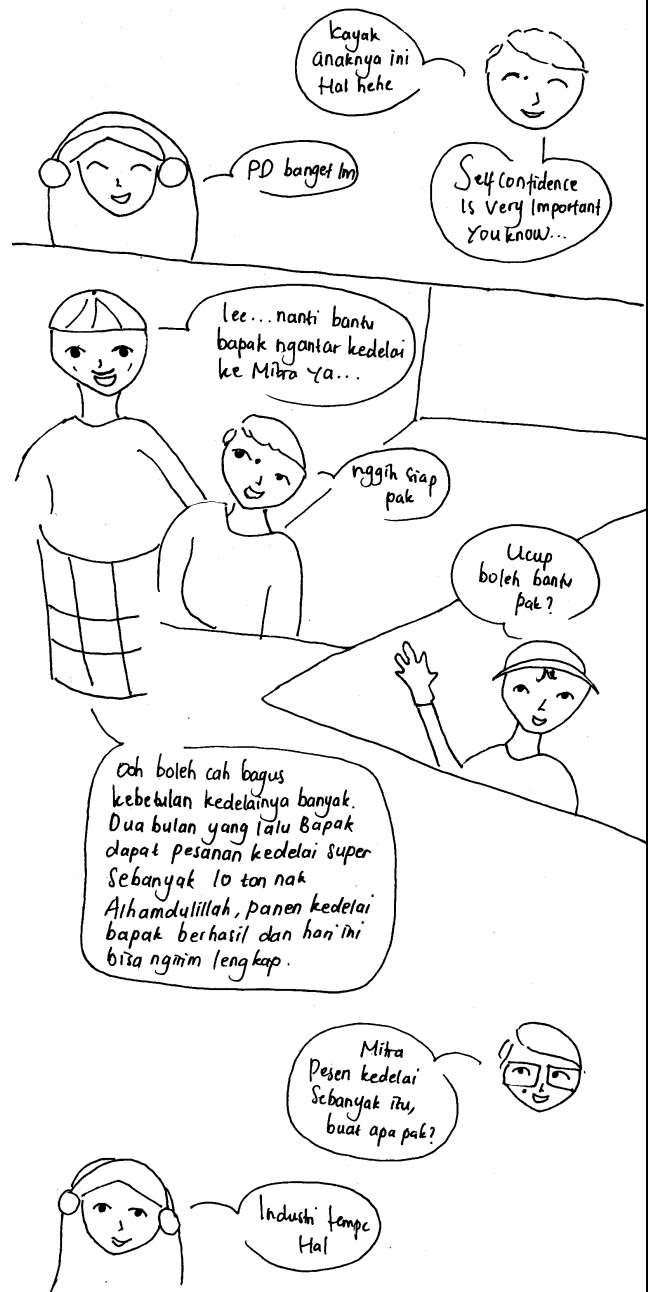 Kayak
anaknya ini
Hal hehe
PD banget lm
Self confidence
Is very Important
You know...
lee...nanti bantu
bapak ngantar kedelai
ke Mitra ya...
nggih siap
pak
Ucup
boleh bantu
pak?
Ooh boleh cah bagus
kebetulan kedelainya banyak.
Dua bulan yang lalu Bapak
dapat pesanan kedelai super
Sebanyak 10 ton nak
Alhamdulillah, panen kedelai
bapak berhasil dan hari ini
bisa ngirim lengkap.
Mitra
Pesen kedelai
Sebanyak itu,
buat apa pak?
Industri tempe
Hal